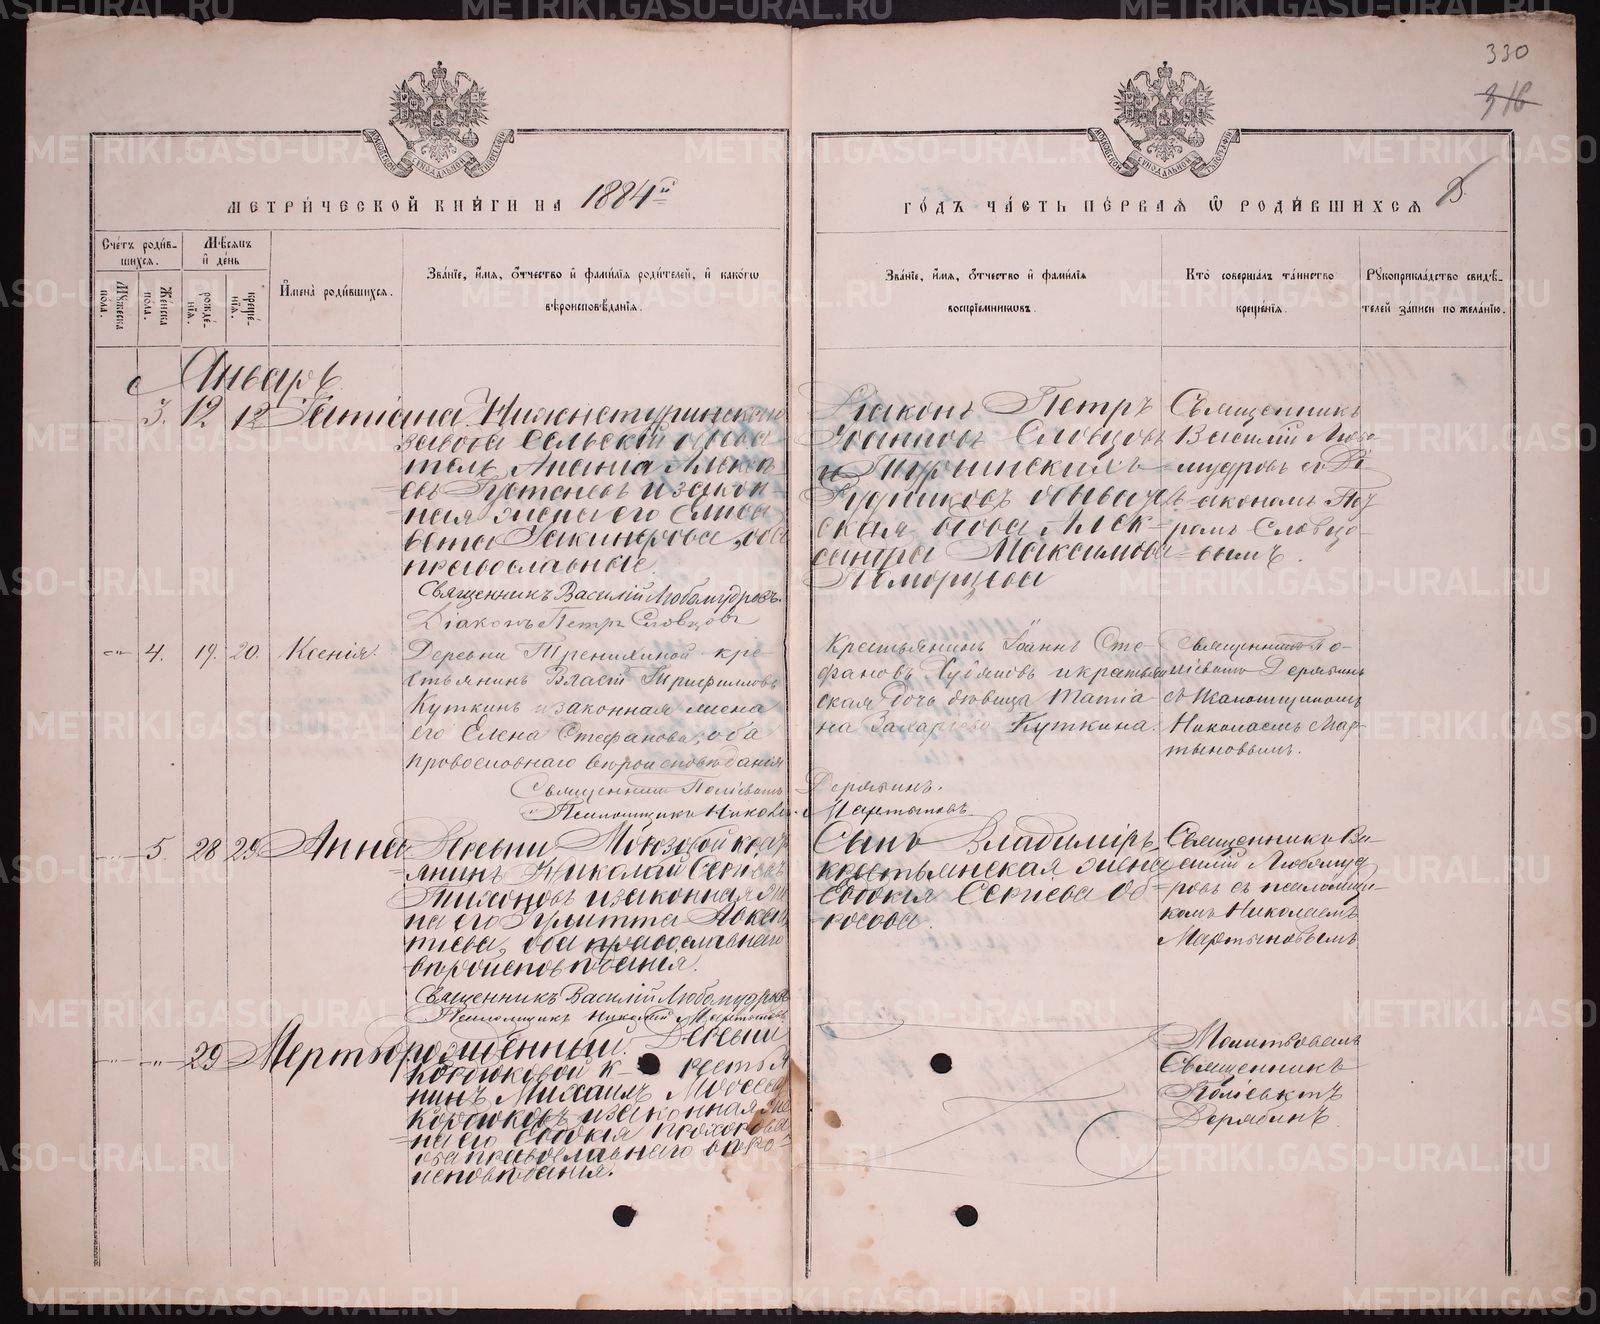 330
318
МЕТРИ́ЧЕСКОЙ КНИ́ГИ НА 1884й
ГО́ДЪ ЧА́СТЬ ПЕ́РВАЯ Ѿ РОДИ́ВШИХСЯ
Сче́тъ роди́в-
шихся.
Мѣсяцъ
и де́нь
Му́жеска
пола.
Же́нска
пола.
рожде́-
нія.
креще́-
нія.
Имена̀ роди́вшихся.
Зва́ніе, имя, о́тчество и фами́лія роди́телей, и како́гѡ
вѣроисповѣ́данія.
Зва́ніе, имя, о́тчество и фами́лія
воспріе́мниковъ.
Кто̀ соверша́лъ та́инство
креще́нія.
Рукоприкла́дство свидѣ́-
телей за́писи по жела́нію.
Январь
3. 12 12 Татіана. Нижнетуринскаго
завода сельской обыва
тель Ананіа Алек
евъ и закон
ная жена его Елиса
вета Іакинфова, оба
православные.
Священникъ Василій Любомудровъ.
Діаконъ Петръ Словцовъ
Діаконъ Петръ
Іоанновъ Словцовъ
и Туринскихъ
Рудниковъ обыватель
ская Алек
сандра Максимова
Поморцева
Священникъ
Василій Любо
мудровъ съ Ді
акономъ Пет
ромъ Словцо
вымъ.
4. 19. 20. Ксенія.
Деревни кре
стьянинъ Власій Трифилловъ
Куткинъ и законная жена
его Елена Стефанова, оба
православнаго вѣроисповѣданія
Священникъ Поліевктъ Дерябинъ.
Псаломщикъ Николай Мартыновъ
Крестьянинъ Іоаннъ Сте
фановъ и крестьян
ская дочь дѣвица Татіа
на Захарьева Куткина.
Священникъ По-
ліевктъ Дерябинъ
съ Псаломщикомъ
Николаемъ Мар
тыновымъ.
5. 28 29 Анна
Деревни крестья
нинъ Николай Сергѣевъ
Тихоновъ и законная же
на его Іулитта Авксен
тіева, оба православнаго
вѣроисповѣданія.
Священникъ Василій Любомудровъ
Псаломщикъ Николай Мартыновъ
Сынъ Владиміръ,
крестьянская жена
Евдокія Сергіева
Священникъ Ва-
силій Любомуд
ровъ съ псаломщи-
комъ Николаемъ
Мартыновымъ
29 Мертворожденный. Деревни
Коротковой крестья
нинъ Михаилъ
Коротковъ и законная же
на его Евдокія Прохорова
оба православнаго вѣро-
исповѣданія.
Священникъ
Поліевктъ
Дерябинъ.